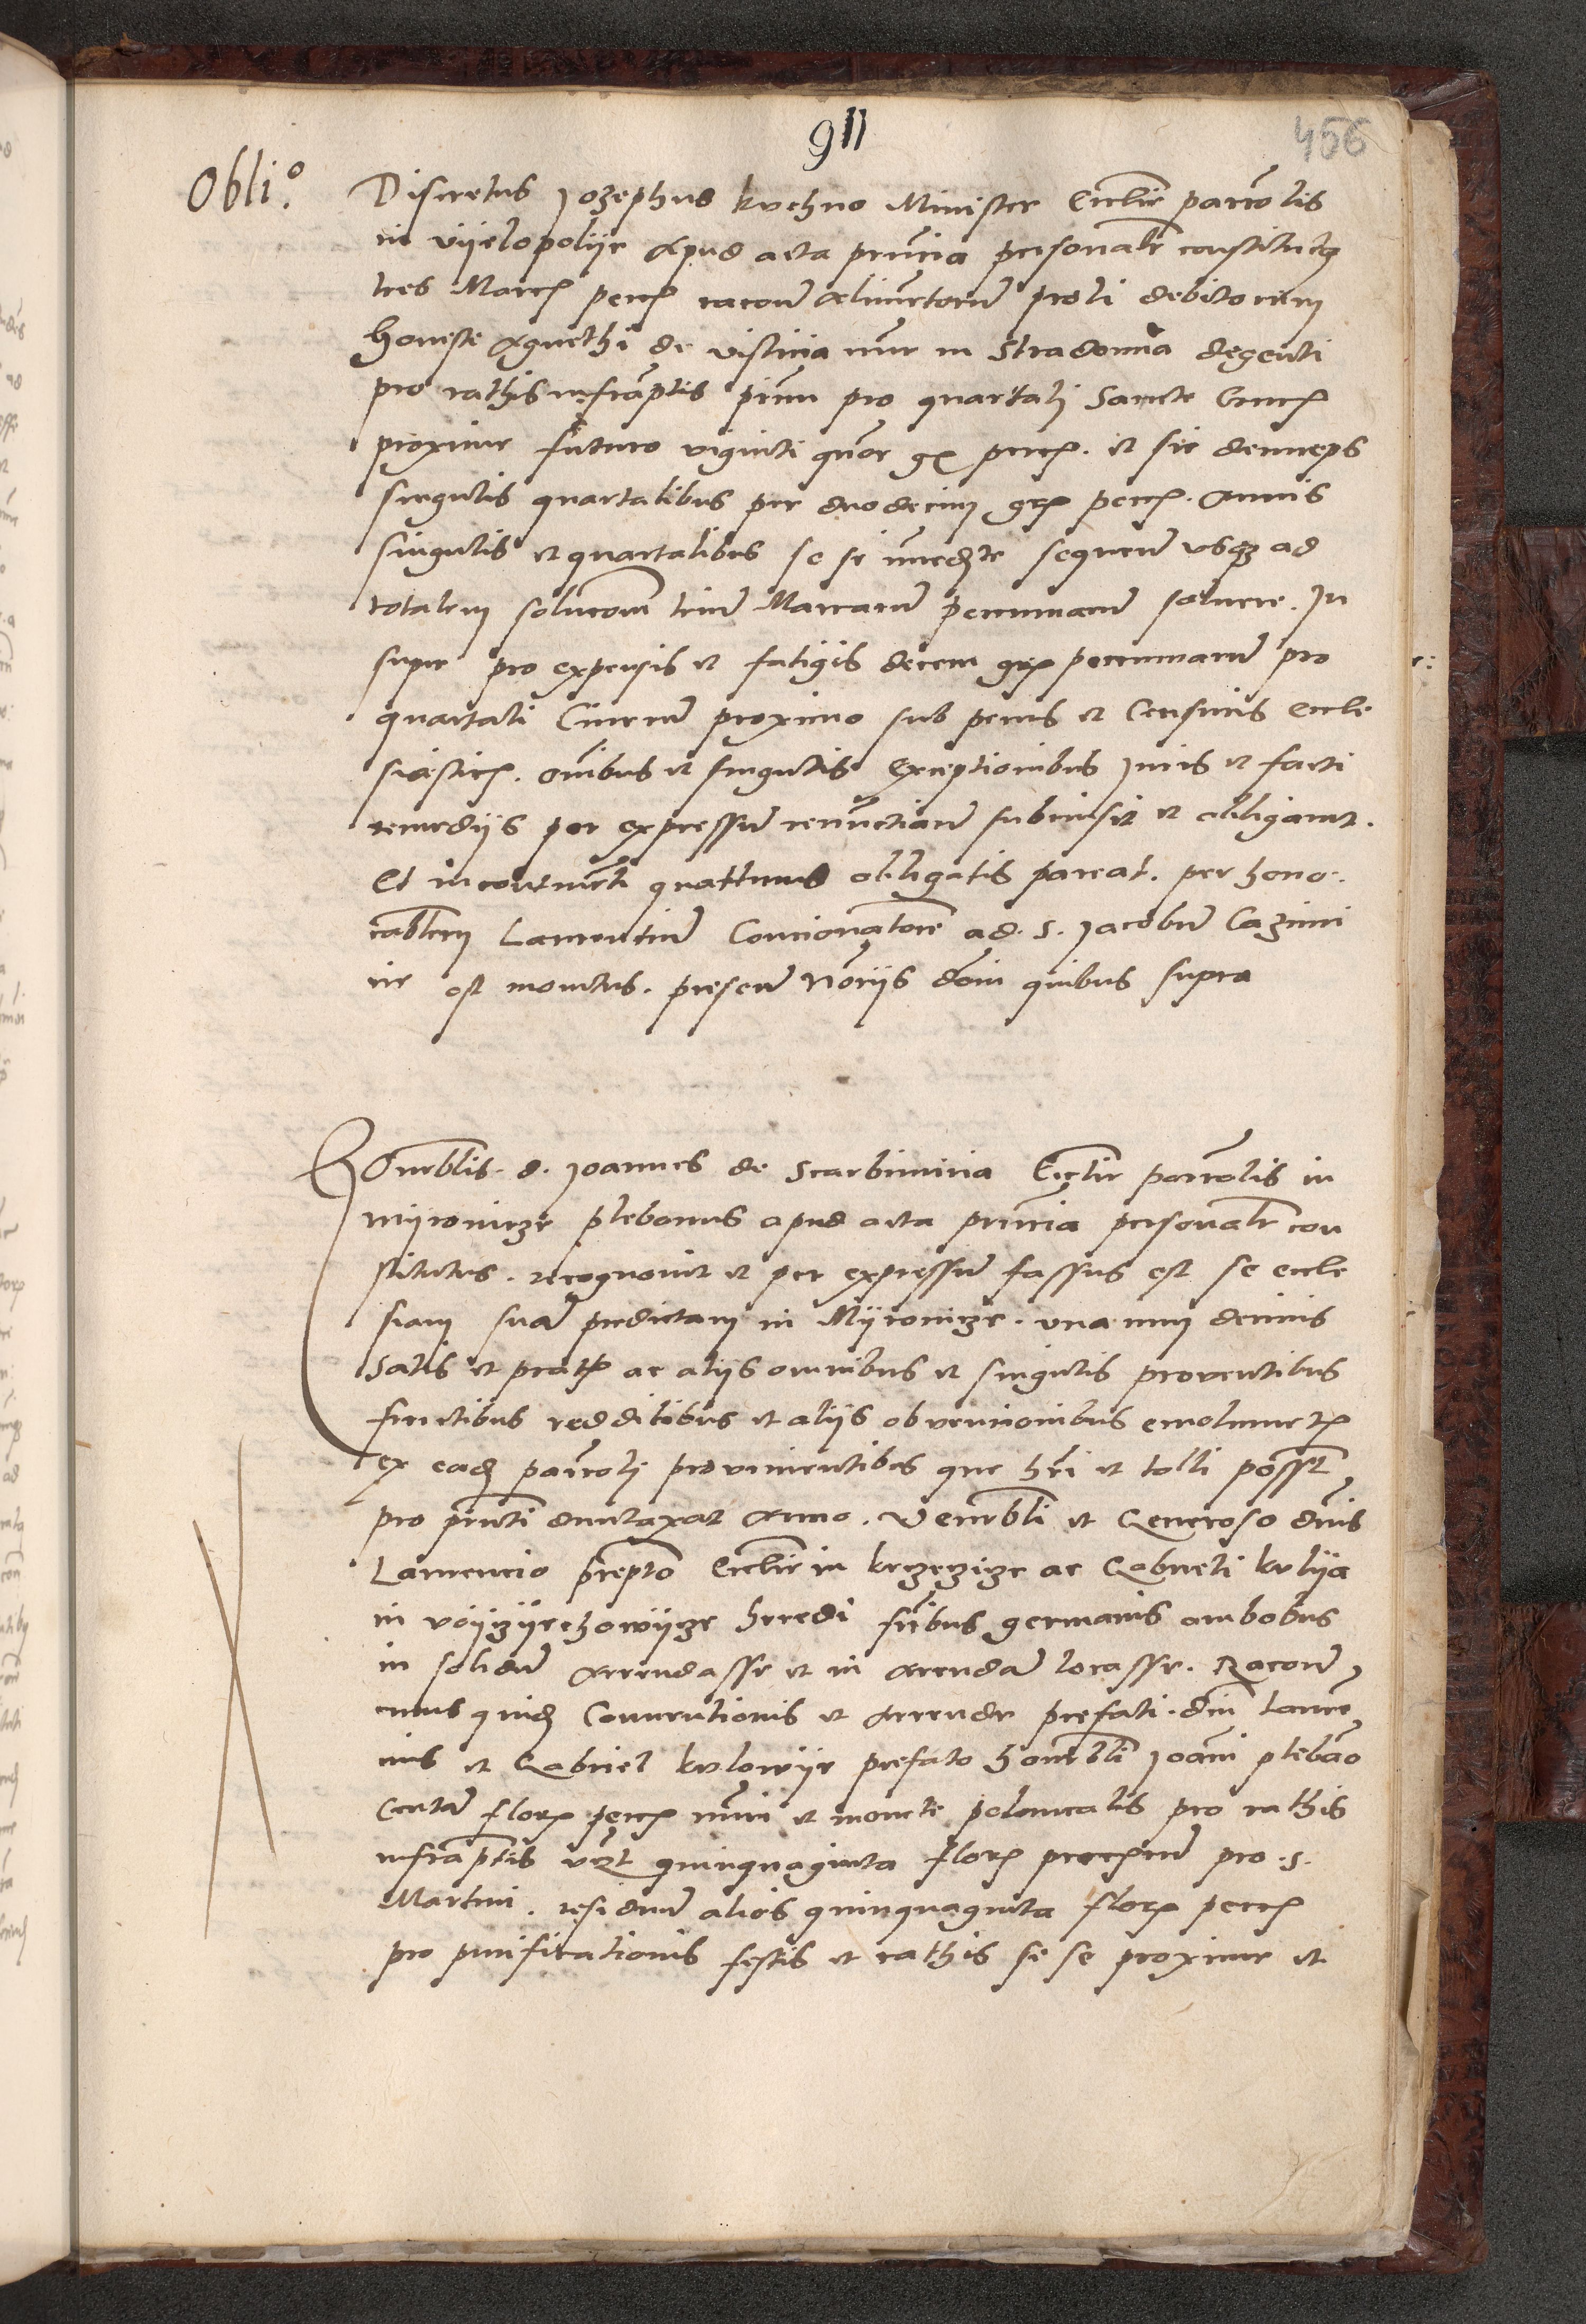 911
456
Obli.o
Discretus Jozephus kuchno Minister Ecclie parrolis
in vyelopolije Apud acta prncia personalr constitutus
tres Marcs peccs racone alimetorum proli debitorum
honeste Agnethi de visticia nunc in Stradomia degenti
pro rathis infraptis primu pro quartali Sancte Crucs
proxime futuro viginti quor gs peccs. et sic deinceps
singulis quartalibus per duodecim grs peccs. Annis
singulis et quartalibus se se imediate sequen usque ad
totalem solucom trium Marcarum pecuniarum soluere. In
super pro expensis et fatigis decem grs pecuniarum pro
quartali Cinerum proximo sub penis et Censuris Eccle
siasticis. omibus et singulis Exceptionibus Juris et facti
remedijs per expressum renunctiando submisit et obligavit.
Et incontinenti quattenus obligatis pareat. per hono.
rablem Laurentium Concionatorem ad. S. Jacobum Cazimi
rie est monitus. presen Norijs Domi quibus supra
Honrblis. d. Joannes de Scarbimiria Ecclie parrolis in
Myronicze plebanus apud acta prncia personalr con
stitutus. recognovit et per expressum fassus est se eccle
siam suam predictam in Myronicze. una cum decimis
Satis et pratis ac alijs omnibus et singulis proventibus
fructibus redditibus et alijs obvencionibus emolumets
ex eadem parroli provenientibus que hri et tolli possent
pro prnti duntaxat Anno. Venrbli et Generoso dnis
Laurencio prepto Ecclie in krzezicze ac Gabrieli kulija
in voyczyechowycze heredi fribus germanis ambobus
in solidum Arrendasse et in Arendam locasse. Racone
cuius quidem Conventionis et Arrende prefati. dni Laure
cius et Gabriel kulowije prefato honrbli Joani plebano
Centum flors peccs numi et monete polonicalis pro rathis
infraptis videlicet quinquaginta flors pecciarum pro. S.
Martini. residuum alios quinquaginta flors peccs
pro purificationis festis et rathis se se proxime et